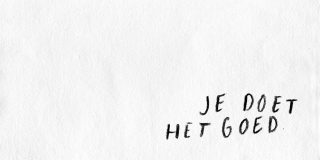 JE DOET
HET GOED